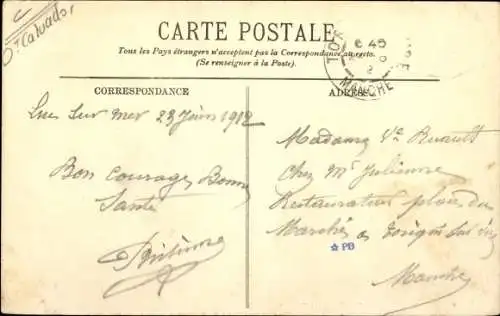 Dt Calvados
CARTE POSTALE
Tous les Pays étrangers n'acceptent pas la Correspondance au recto.
(Se renseigner à la Poste).
CORRESPONDANCE
ADRESSE
TOR
6 45
MANCHE
Luc sur mer 23 Juin 1912
Bon courage, Bonne
Santé
Madame Ve Ruault
Chez Mr Julienne
Restaurateur place du
Marché a Torigni sur Vire
Manche
PB